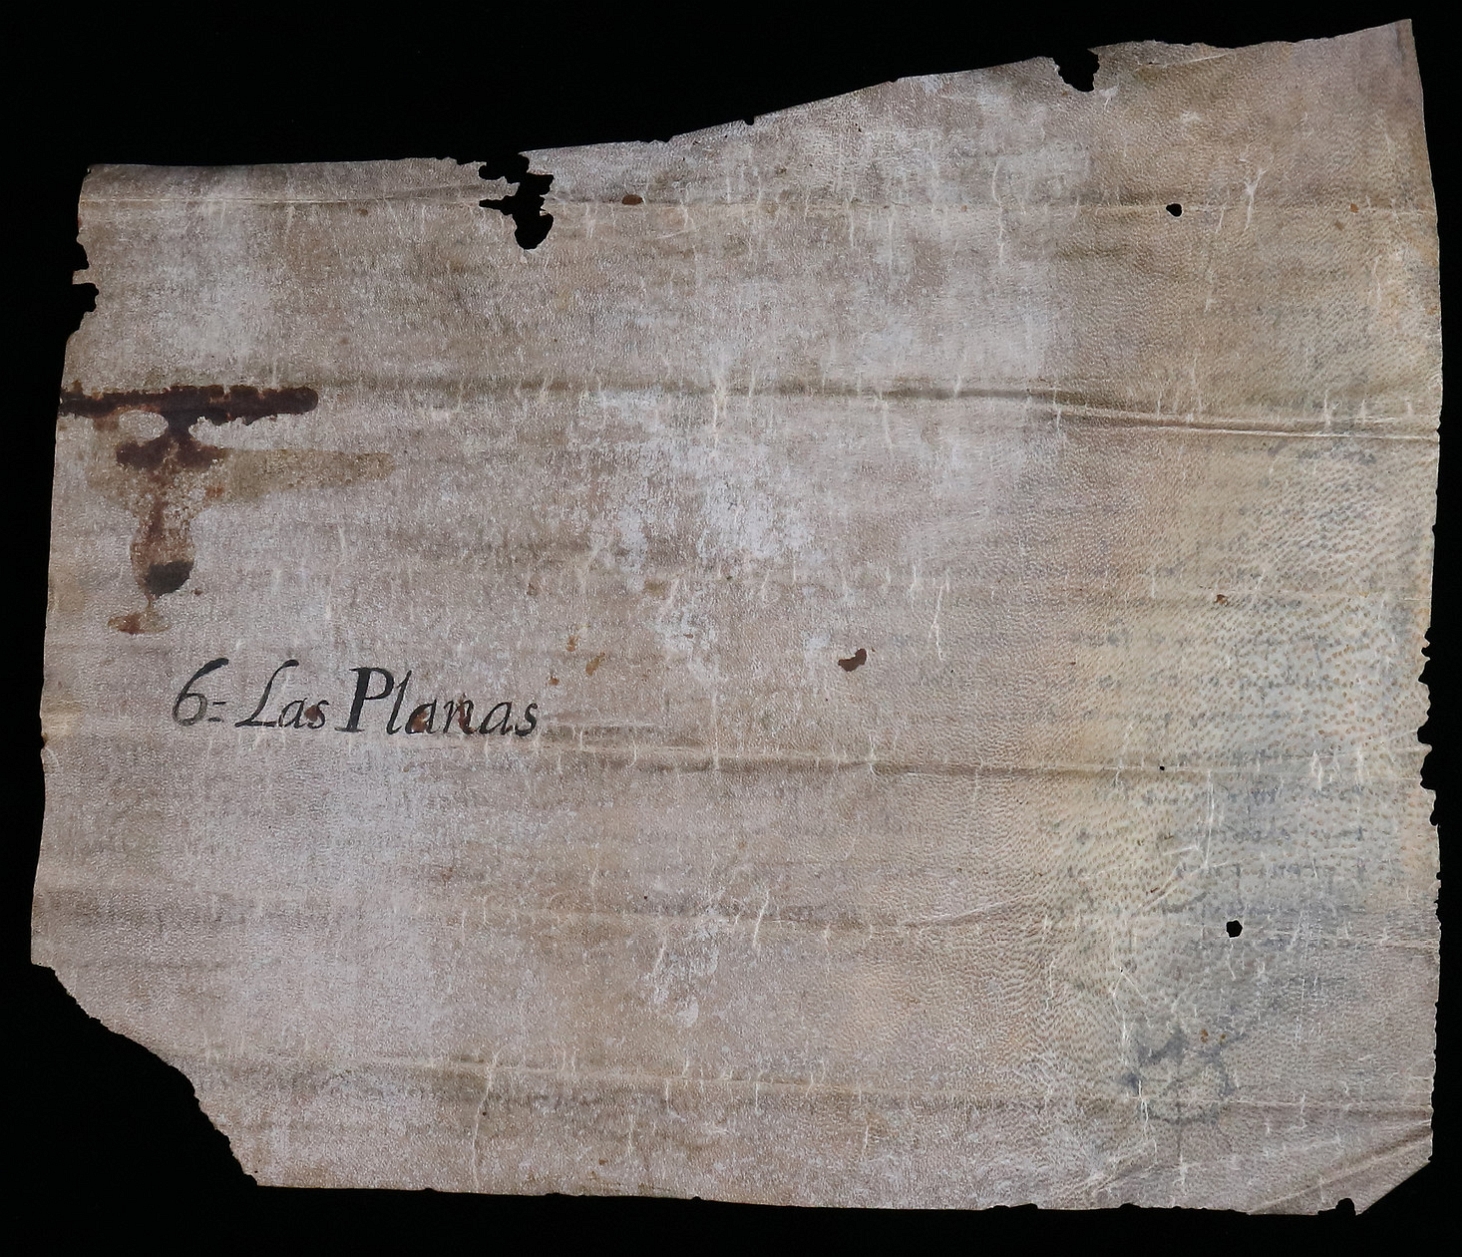 6= Las Planas